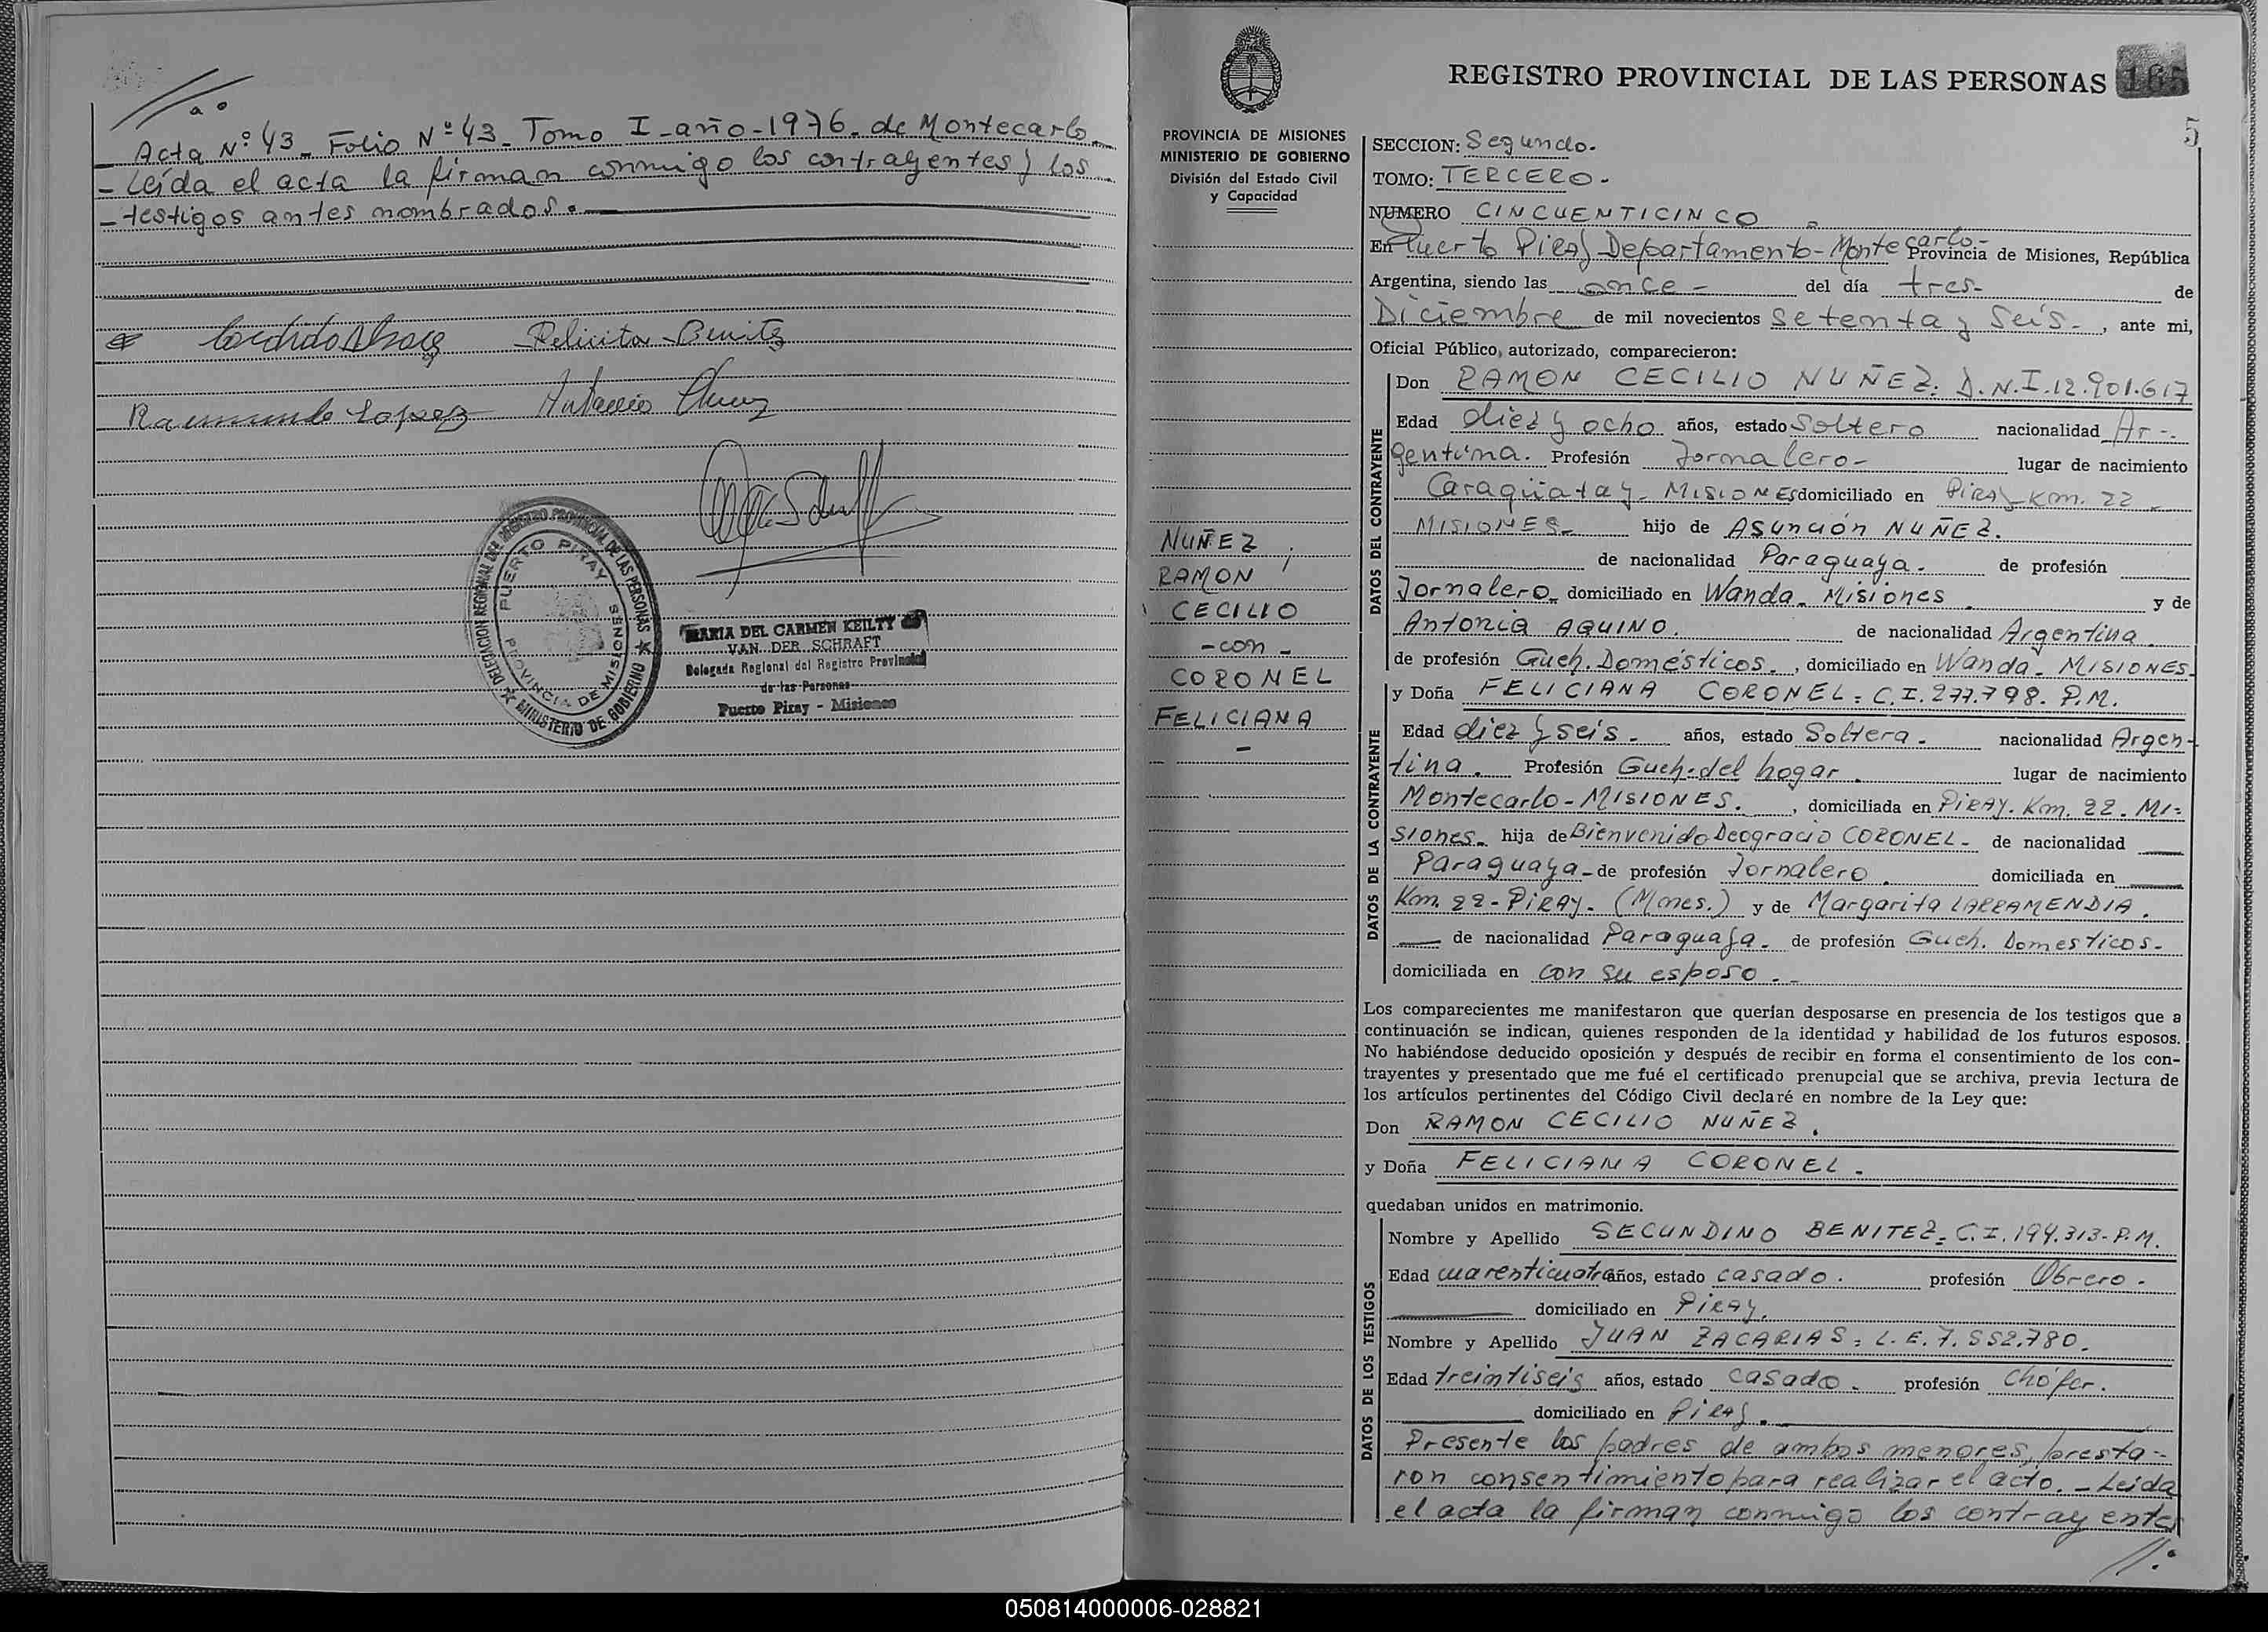 Acta Nº 43 - Folio Nº 43 - Tomo I - año - 1976 - de Montecarlo
- Leída el acta la firman conmigo los contrayentes y los
- testigos antes nombrados.
Felicita Benitz
Raimundo Lopez
DELEGACION REGIONAL DEL REGISTRO PROVINCIAL DE LAS PERSONAS
MINISTERIO DE GOBIERNO
PUERTO PIRAY
PROVINCIA DE MISIONES
MARIA DEL CARMEN KEILTY
VAN DER SCHRAFT
Delegada Regional del Registro Provincial
de las Personas
Puerto Piray - Misiones
REGISTRO PROVINCIAL DE LAS PERSONAS 165
5
PROVINCIA DE MISIONES
MINISTERIO DE GOBIERNO
División del Estado Civil
y Capacidad
NUÑEZ
RAMON
CECILIO
- con -
CORONEL
FELICIANA
-
SECCION: Segundo.
TOMO: TERCERO.
NUMERO CINCUENTICINCO
En Puerto Piray Departamento - Montecarlo - Provincia de Misiones, República
Argentina, siendo las once - del día tres - de
Diciembre de mil novecientos setenta y Seis -, ante mi,
Oficial Público, autorizado, comparecieron:
DATOS DEL CONTRAYENTE
Don RAMON CECILIO NUÑEZ: D.N.I. 12.901.617
Edad diez y ocho años, estado Soltero nacionalidad Ar-
gentina. Profesión Jornalero - lugar de nacimiento
Caraguatay - MISIONES domiciliado en PIRAY - Km. 22 -
MISIONES - hijo de Asunción NUÑEZ.
de nacionalidad Paraguaya. de profesión
Jornalero - domiciliado en Wanda - Misiones y de
Antonia AQUINO. de nacionalidad Argentina
de profesión Queh. Domésticos., domiciliado en Wanda - MISIONES.
DATOS DE LA CONTRAYENTE
y Doña FELICIANA CORONEL: C.I. 277.798. P.M.
Edad diez y seis - años, estado Soltera. nacionalidad Argen-
tina. Profesión Queh. del hogar. lugar de nacimiento
Montecarlo - MISIONES., domiciliada en PIRAY. Km. 22. MI-
siones. hija de Bienvenido Deogracio CORONEL - de nacionalidad
Paraguaya - de profesión Jornalero. domiciliada en
Km. 22 - PIRAY. (Mnes.) y de Margarita LARRAMENDIA.
de nacionalidad Paraguaya. de profesión Queh. Domesticos.
domiciliada en con su esposo.
Los comparecientes me manifestaron que querían desposarse en presencia de los testigos que a
continuación se indican, quienes responden de la identidad y habilidad de los futuros esposos.
No habiéndose deducido oposición y después de recibir en forma el consentimiento de los con-
trayentes y presentado que me fué el certificado prenupcial que se archiva, previa lectura de
los artículos pertinentes del Código Civil declaré en nombre de la Ley que:
Don RAMON CECILIO NUÑEZ.
y Doña FELICIANA CORONEL.
quedaban unidos en matrimonio.
DATOS DE LOS TESTIGOS
Nombre y Apellido SECUNDINO BENITEZ: C.I. 194.313 - P.M.
Edad cuarenticuatro años, estado casado. profesión Obrero.
domiciliado en PIRAY.
Nombre y Apellido JUAN ZACARIAS: L.E. 7.552.780.
Edad treintiseis años, estado casado. profesión Chófer.
domiciliado en PIRAY.
Presente los padres de ambos menores, presta-
ron consentimiento para realizar el acto. - Leida
el acta la firman conmigo los contrayentes
050814000006-028821